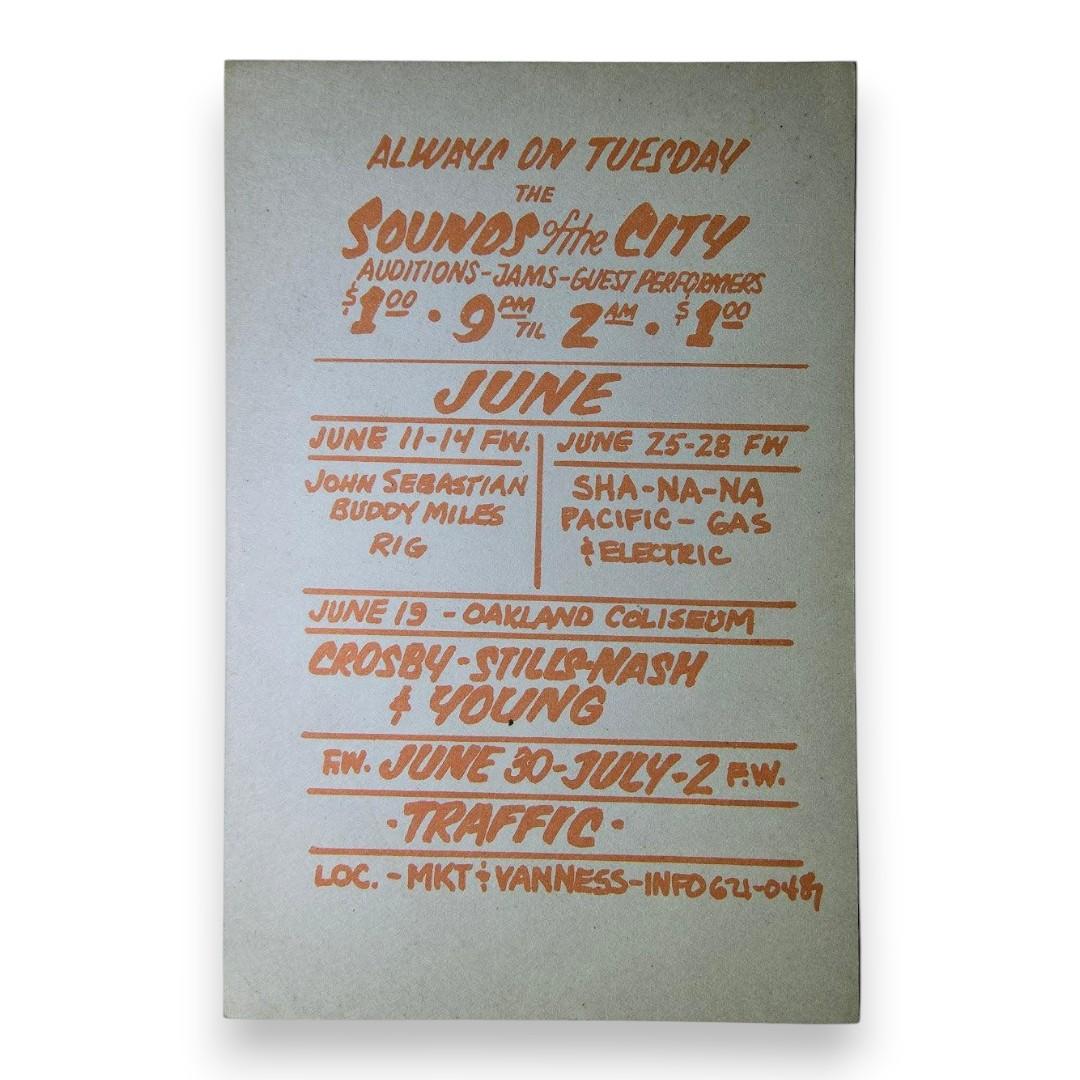 ALWAYS ON TUESDAY
THE
SOUNDS of the CITY
AUDITIONS-JAMS-GUEST PERFORMERS
$1.00 • 9 PM TIL 2 AM • $1.00
JUNE
JUNE 11-14 FW.
JOHN SEBASTIAN
BUDDY MILES
RIG
JUNE 25-28 FW
SHA-NA-NA
PACIFIC-GAS
& ELECTRIC
JUNE 19 - OAKLAND COLISEUM
CROSBY-STILLS-NASH
& YOUNG
F.W. JUNE 30-JULY-2 F.W.
•TRAFFIC•
LOC. - MKT & VANNESS-INFO 621-0487